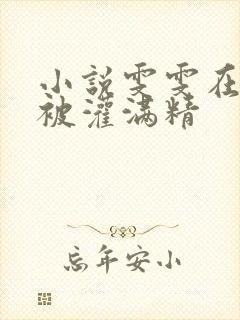 小説雯雯在
被灌满精
忘年安小